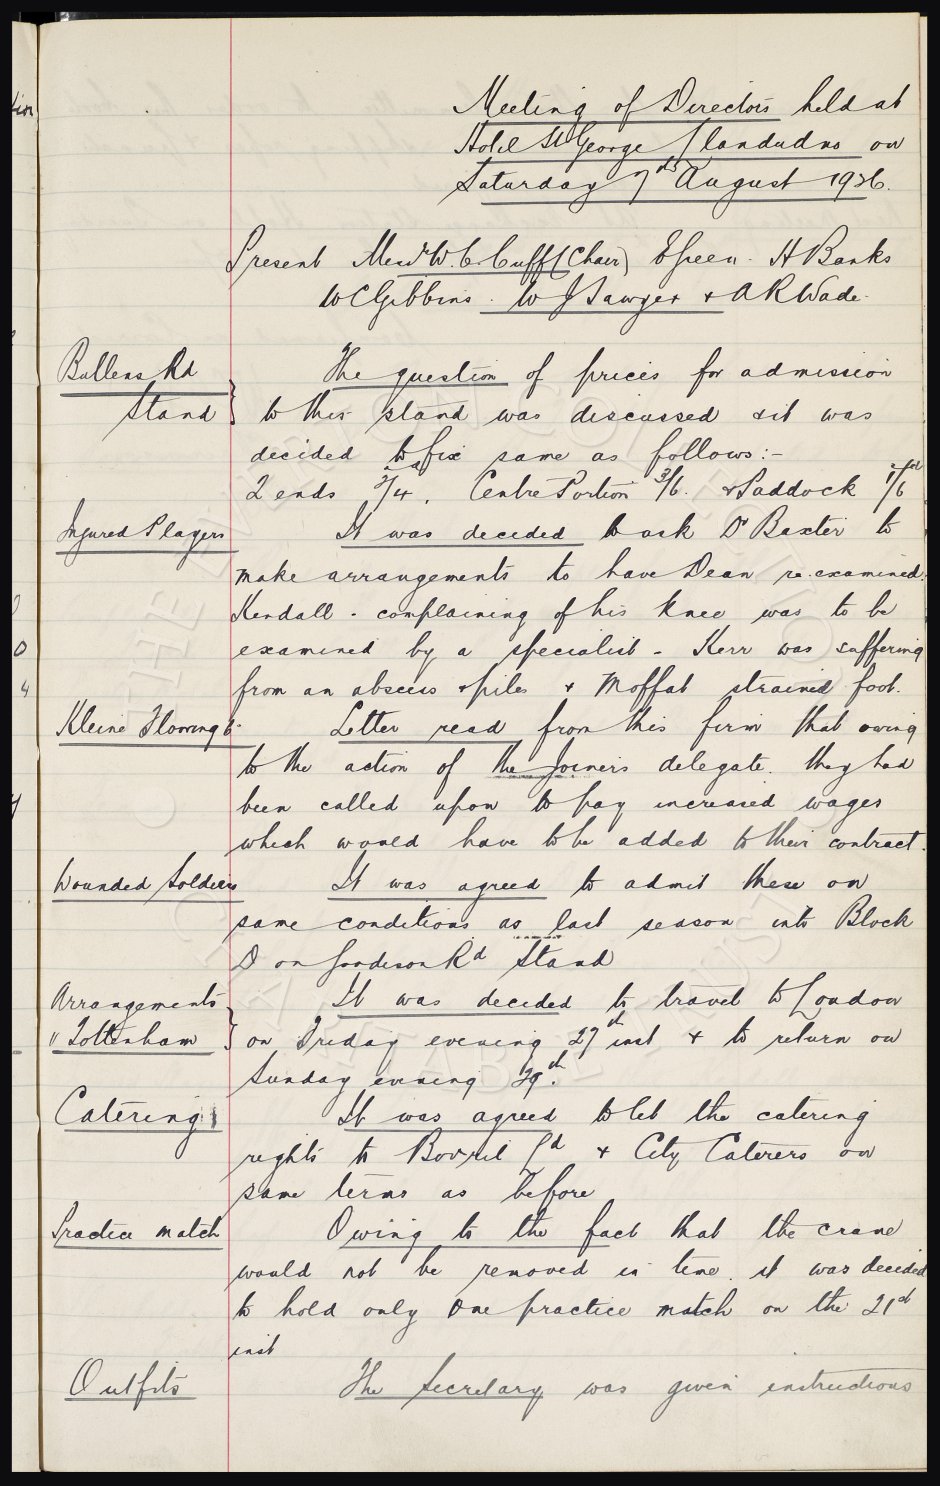 Meeting of Directors held at
Hotel St George Llandudno on
Saturday 7th August 1926.
Present Messrs W. C. Cuff (Chair) E Green. H Banks
W C Gibbins. W J Sawyer & A R Wade.
Bullens Rd
Stand
The question of prices for admission
to this stand was discussed & it was
decided to fix same as follows:-
2 ends 2/4. Centre Portion 3/6. & Paddock 1/6
Injured Players
It was decided to ask Dr Baxter to
make arrangements to have Dean re-examined.
Kendall - complaining of his knee was to be
examined by a specialist - Kerr was suffering
from an abscess & piles & Moffat strained foot.
Kleine Flooring Co
Letter read from this firm that owing
to the action of the Joiners delegate. they had
been called upon to pay increased wages
which would have to be added to their contract.
Wounded Soldiers
It was agreed to admit these on
same conditions as last season into Block
D on Goodison Rd Stand
Arrangements
" Tottenham
It was decided to travel to London
on Friday evening 27th inst & to return on
Sunday evening 29th.
Catering
It was agreed to let the catering
rights to Bovril Ld & City Caterers on
same terms as before
Practice match
Owing to the fact that the crane
would not be removed in time. it was decided
to hold only one practice match on the 21st
inst
Outfits
The Secretary was given instructions